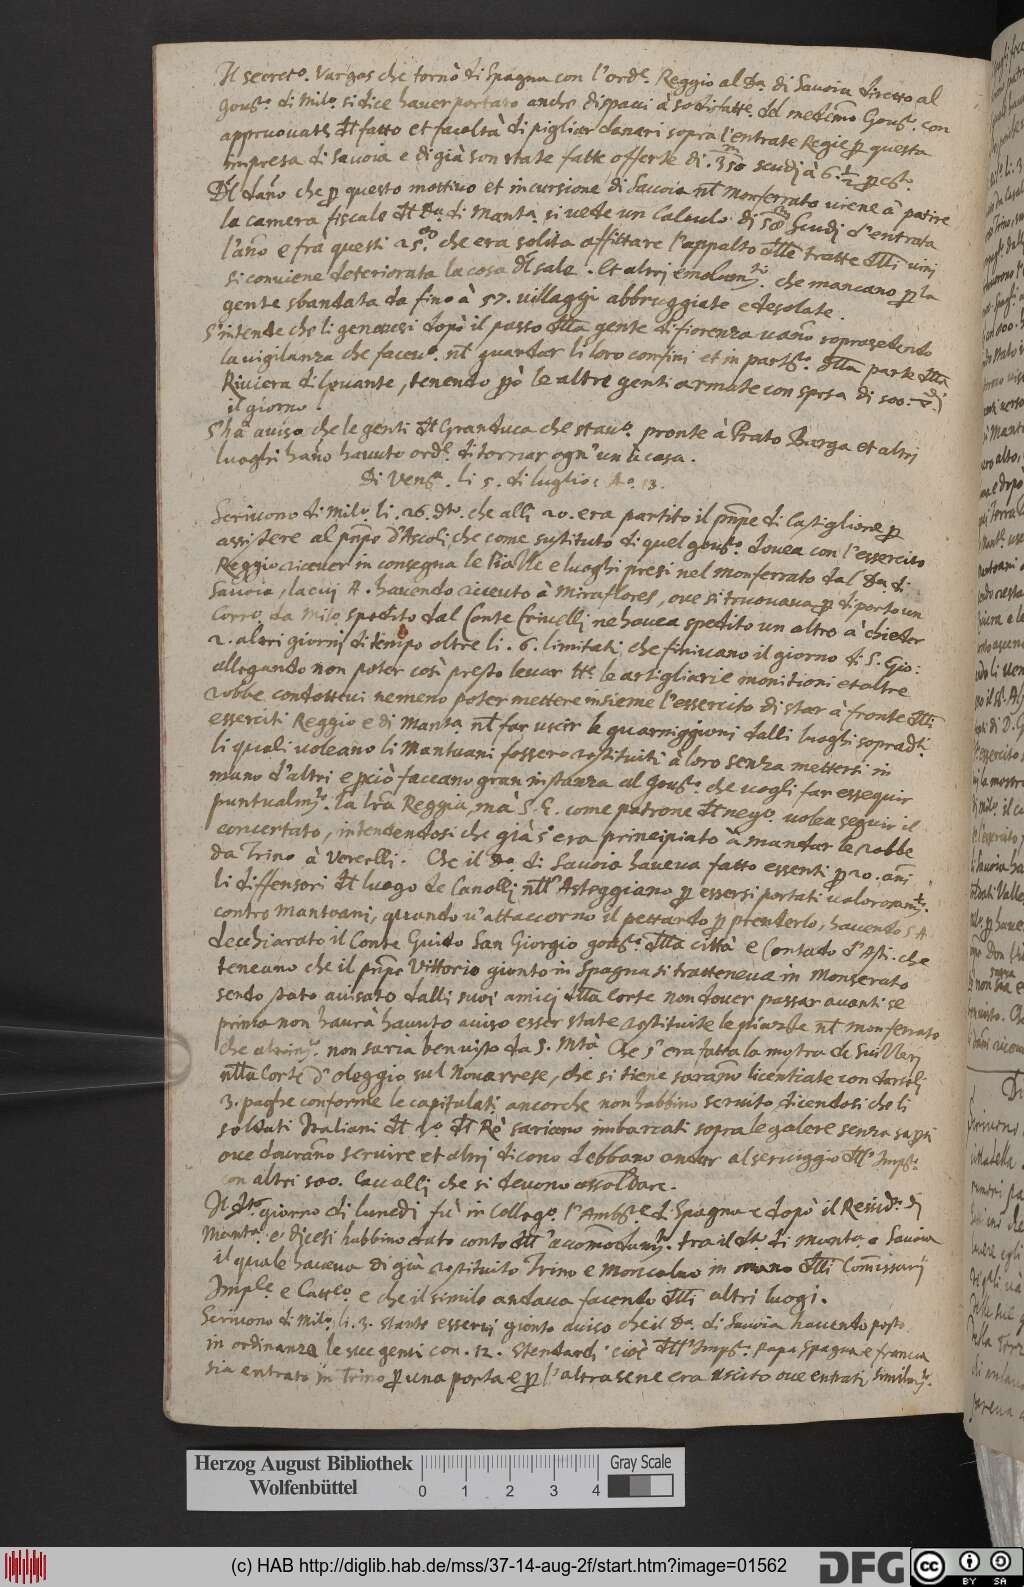 Il secret.o Vargas che tornò di Spagna con l'ord.e Reggio al Da. di Savoia diretto al
Gou.r di Mil.o si dice haver portato anche dispacci à sodisfatt.e del medemo Gou.r con
approuuat.e del fatto et facoltà di pigliar danari sopra l'entrate Regie p questa
impresa di Savoia e di già son state fatte offerte di 350 scudi à 6 1/2 p c.to
Del dano che p questo mottivo et incursione di Savoia nel Monferrato viene à patire
la camera fiscale del Da. di Manta. si vede un Calculo di scudi d'entrata
l'año e frà questi 25 che era solita affittare l'appalto delle tratte delli vini
si conviene deteriorata la cosa del sale. Et altri emolum.ti che mancano p la
gente sbandata da fino à 57. villaggi abbruggiate e desolate.
S'intende che li genovesi dopò il passo della gente di fiorenza vano soprasedendo
la vigilanza che facev.o nel guardar li loro confini et in part.re della parte della
Riviera di levante, tenendo pò le altre genti armate con spesa di 500.
il giorno.
S'hà aviso che le genti del Granduca che stav.o pronte à Prato Barga et altri
luoghi hano havuto ord.e di tornar ogn'un à casa.
Di Ven.a li 5. di luglio: Ao. 13.
Scrivono di Mil.o li. 26. dto. che alli 20. era partito il pnpe di Castiglione p
assistere al pnpe d'Ascoli, che come sustituto di quel gou.r dovea con l'essercito
Reggio ricever in consegna le Piazze e luoghi presi nel monferrato dal Da. di
Savoia, la cui A. havendo ricevuto à Miraflores, ove si trovava p diporto un
Corro. da Mil.o spedito dal Conte Crivelli ne havea spedito un altro à chieder
2. altri giorni di tempo oltre li. 6. limitati, che finivano il giorno di S. Gio:
allegando non poter così presto levar tte le artigliarie monitioni et altre
robbe condottevi nemeno poter mettere insieme l'essercito di star à fronte delli
esserciti Reggio e di Manta. nel far uscir le guarniggioni dalli luoghi sopradti.
li quali voleano li Mantuani fossero restituiti à loro senza mettersi in
mano d'altri e pciò faccano gran instanza al Gou.r che vogli far esseguir
puntualm.te la lra Reggia, mà S. E. come patrone del neg.o volea seguir il
concertato, intendendosi che già s'era principiato à mandar le robbe
da Trino à Vercelli. Che il Da. di Savoia haveva fatto essenti p 20. ani
li diffensori del luogo de Canelli nell'Asteggiano p essersi portati valorosam.te
contro Mantoani, quando v'attaccorno il pettardo p prenderlo, havendo S. A.
decchiarato il Conte Guido San Giorgio gou.r della città e Contado d'Asti. che
teneano che il pnpe Vittorio gionto in Spagna si tratteneva in Monserato
sendo stato avisato dalli suoi amici della Corte non dover passar avanti se
prima non haurà havuto aviso esser state restituite le piazze nel monferrato
che altrim.te non saria ben visto da S. Mtà. Che s'era fatta la mostra de Suizzari
nella Corte d'Oleggio sul Novarrese, che si tiene sarano licentiate con darseli
3. paghe conforme le capitulati ancorche non habbino servito, dicendosi che li
soldati Italiani del Ro. del Re sariano imbarcati sopra le galere senza sapersi
ove dovrano servire et altri dicono debbano andar al serviggio dell'Imp.re
con altri 500. Cavalli che si devono assoldare.
Il dto. giorno di lunedi fù in Colleg.o l'Amb.re di Spagna e dopò il Resid.te di
Manta. e dicesi habbino dato conto dell'acomodam.to tra il Da. di Manta. e Savoia
il quale haveva di già restituito Trino e Moncalvo in mano delli Comissarij
Imple. e Catt.co e che il simile andava facendo delli altri luogi.
Scrivono di Mil.o li. 3. stante esservi gionto aviso che il Da. di Savoia havendo posto
in ordinanza le sue genti con. 12. stendardi cioè dell'Imp.re Papa Spagna e francia
sia entrato in Trino p una porta e p l'altra se ne era uscito ove entrati similm.te
Herzog August Bibliothek
Wolfenbüttel
0 1 2 3 4
Gray Scale
(c) HAB http://diglib.hab.de/mss/37-14-aug-2f/start.htm?image=01562
DFG
cc BY SA